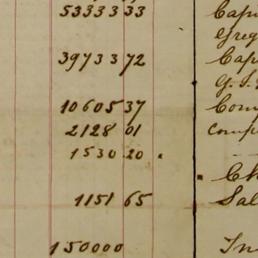 53333 33 Cap
Greg
39733 72 Cap
10605 37 Com
2128 01 comp
1530 20 .
Ch
1151 65 Sal
150000 In